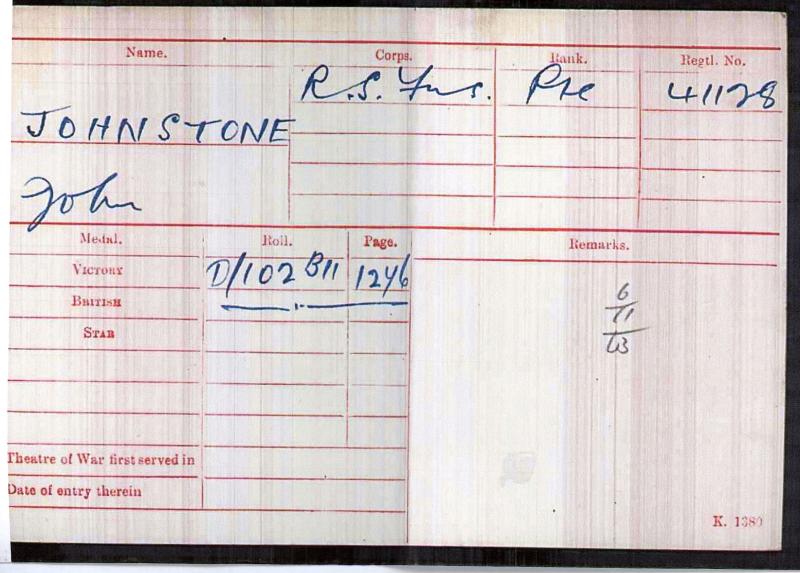 Name. Corps. Rank. Regtl. No.
R.S. Fus. Pte 41128
JOHNSTONE
John
Medal. Roll. Page. Remarks.
VICTORY D/102 B11 1246
BRITISH
STAR
6
11
13
Theatre of War first served in
Date of entry therein
K. 1380